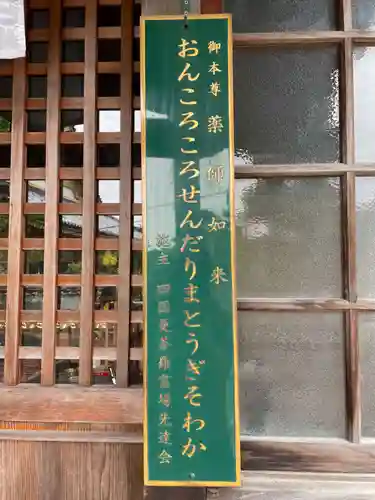 御本尊 薬師如来
おんころころせんだりまとうぎそわか
施主 四国曼荼羅霊場先達会